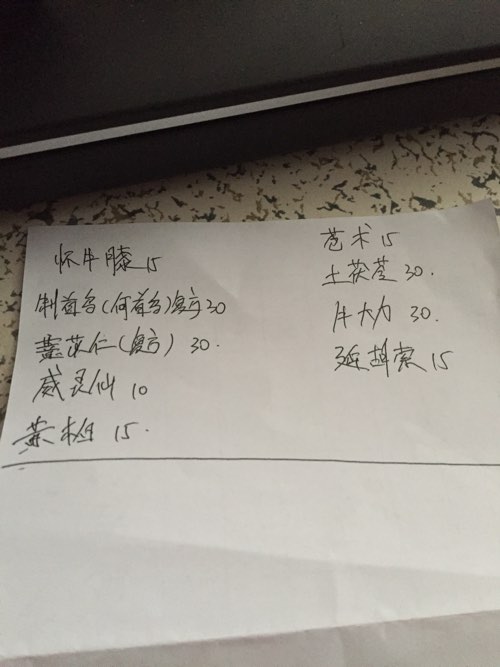 怀牛膝 15
制首乌(何首乌)复方 30
薏苡仁(复方) 30.
威灵仙 10
黄柏 15.
苍术 15
土茯苓 30.
牛大力 30.
延胡索 15